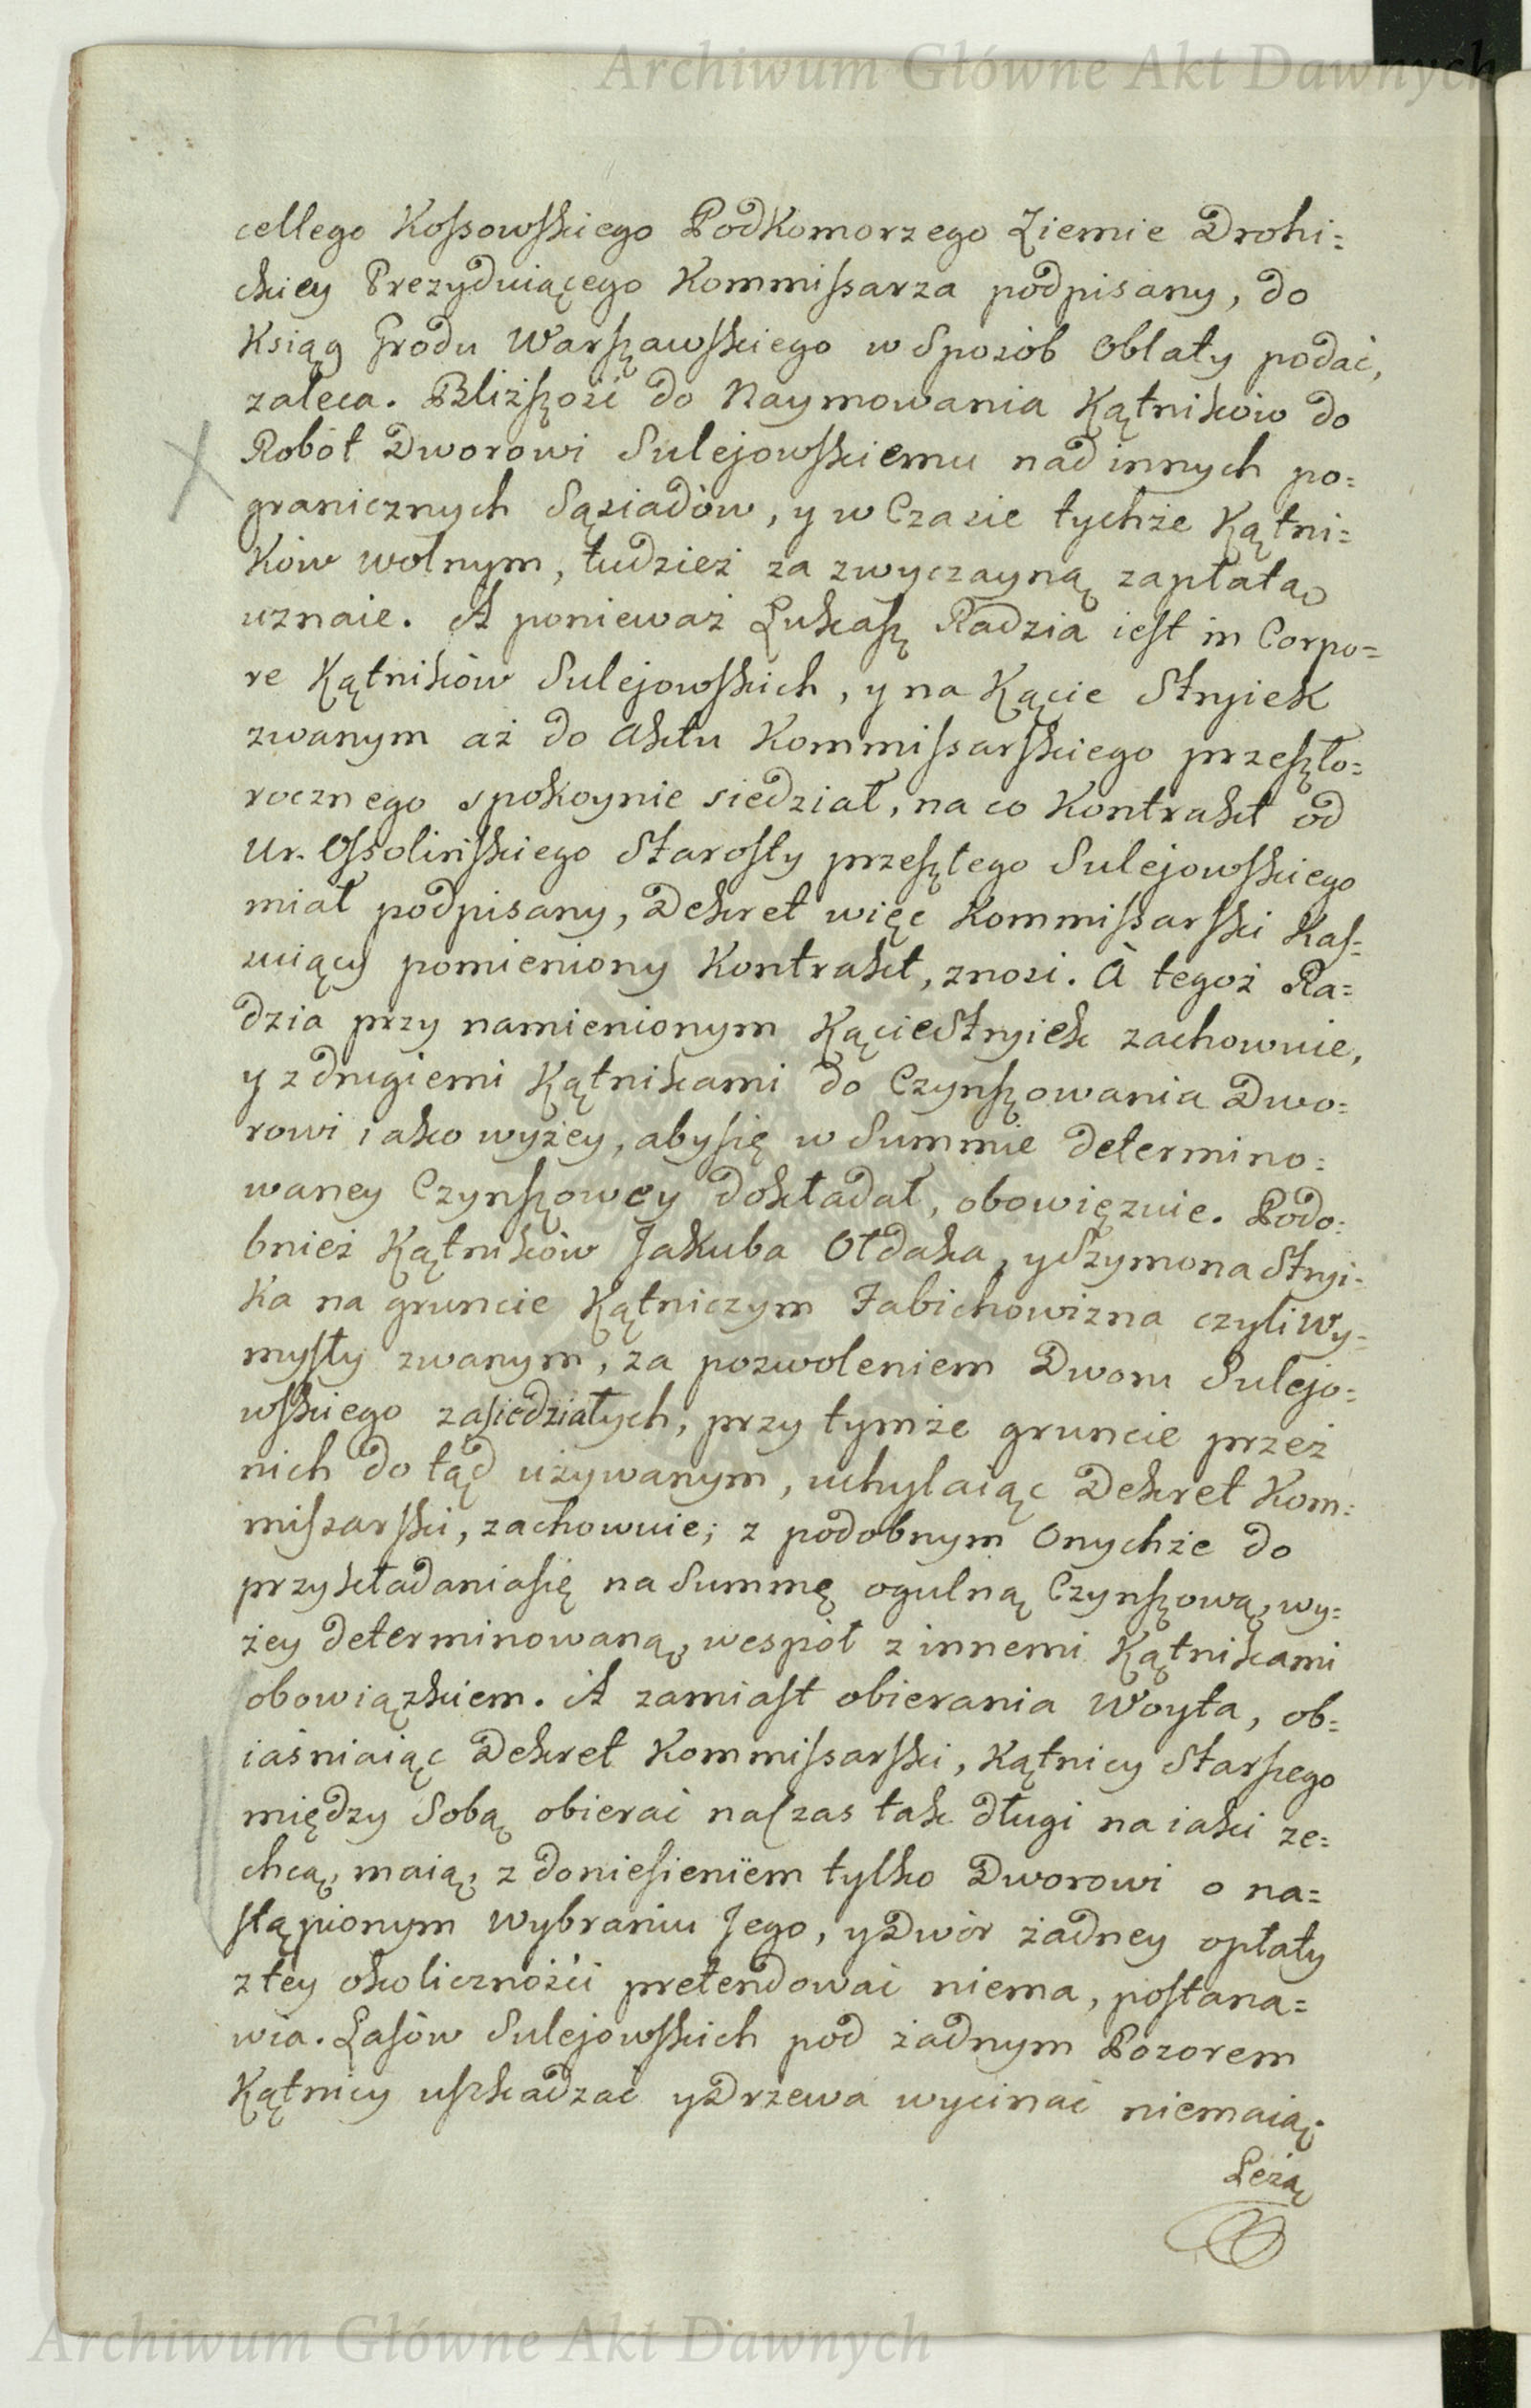 Archiwum Główne Akt Dawnych
cellego Kossowskiego PodKomorzego Ziemie Drohi=
ckiey Prezyduiącego Kommissarza podpisany, do
Ksiąg Grodu Warszawskiego w Sposób Oblaty podać,
zaleca. Bliższość do Naymowania Kątników do
Robót Dworowi Sulejowskiemu nad innych po=
granicznych Sąsiadów, y w Czasie tychże Kątni=
ków wolnym, tudzież za zwyczayną zapłatą
uznaie. A ponieważ Łukasz Radzia iest in Corpo=
re Kątników Sulejowskich, y na Kącie Stryiek
zwanym aż do Aktu Kommissarskiego przeszło=
rocznego spokoynie siedział, na co Kontrakt od
Ur. Ossolińskiego Starosty przeszłego Sulejowskiego
miał podpisany, Dekret więc Kommissarski Kas=
suiący pomieniony Kontrakt, znosi. A tegoż Ra=
dzia przy namienionym Kącie Stryiek zachowuie,
y z drugiemi Kątnikami do Czynszowania Dwo=
rowi iako wyżey, aby się w Summie determino=
waney Czynszowey dokładał, obowięzuie. Podo=
bnież Kątników Jakuba Ołdaka, y Szymona Stryi=
ka na gruncie Kątniczym Fabichowizna czyli Wy=
mysły zwanym, za pozwoleniem Dworu Sulejo=
wskiego zasiedziałych, przy tymże gruncie przez
nich do tąd używanym, uchylaiąc Dekret Kom=
missarski, zachowuie; z podobnym Onychże do
przykładania się na Summę ogulną Czynszową, wy=
żey determinowaną, wespół z innemi Kątnikami
obowiązkiem. A zamiast obierania Woyta, ob=
iaśniaiąc Dekret Kommissarski, Kątnicy Starszego
między Sobą obierać na Czas tak długi na iaki ze=
chcą, maią, z doniesieniem tylko Dworowi o na=
stąpionym Wybraniu Jego, y Dwór żadney opłaty
z tey okoliczności pretendować niema, postana=
wia. Lasów Sulejowskich pod żadnym Pozorem
Kątnicy uszkadzać y Drzewa wycinać niemaią.
Leżą
Archiwum Główne Akt Dawnych